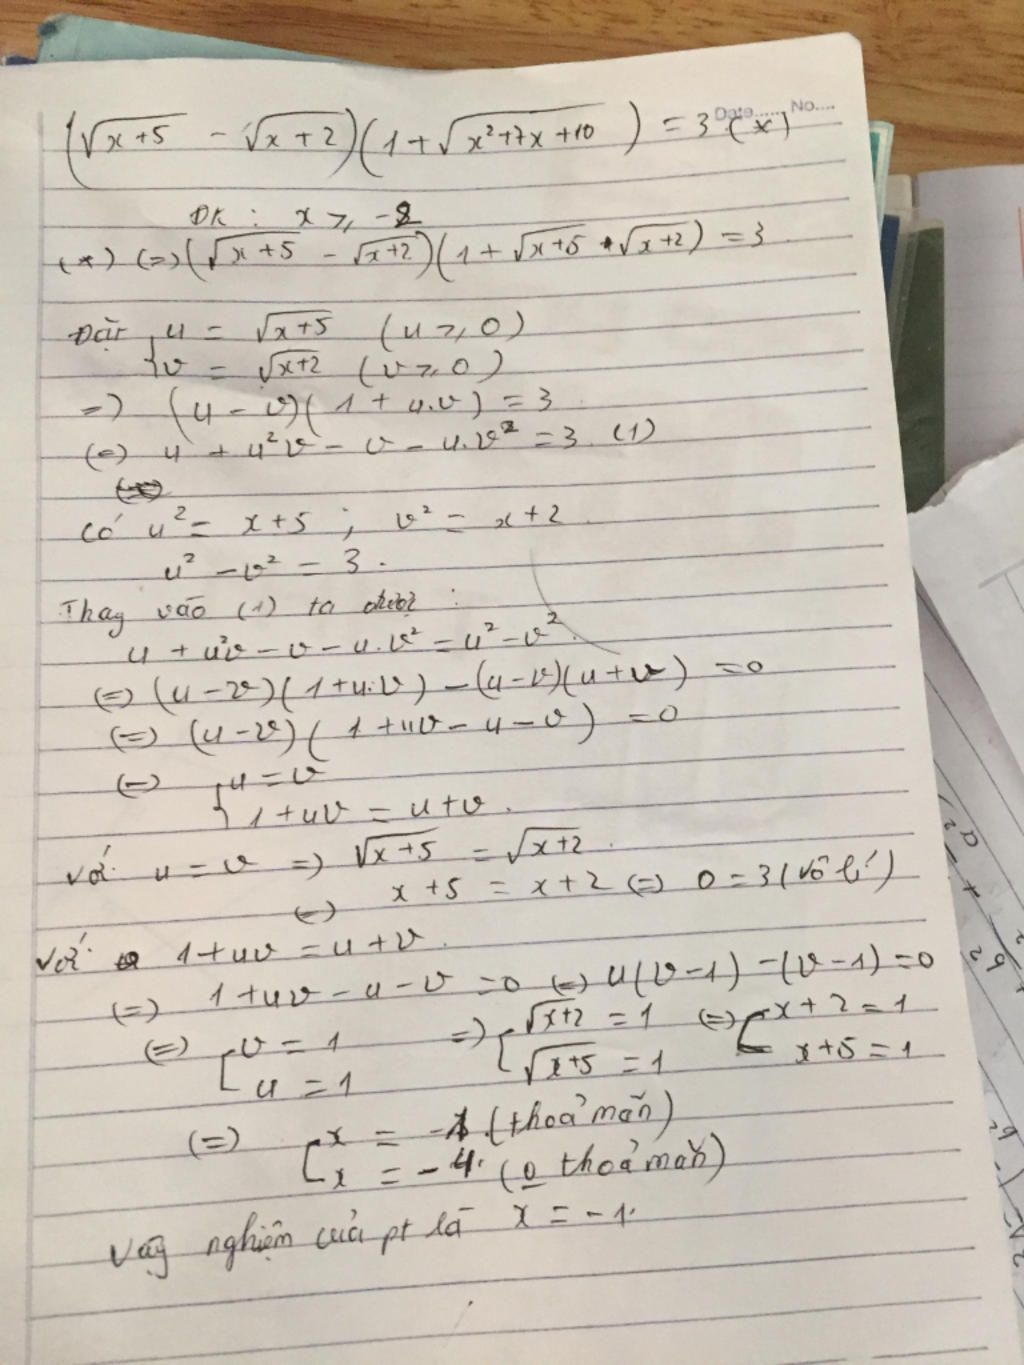 Date...... No....
(√(x+5) - √(x+2))(1+√(x²+7x+10)) = 3 (*)
ĐK : x ⩾ -2
(*) (=) (√(x+5) - √(x+2))(1 + √(x+5) • √(x+2)) = 3
Đặt { u = √(x+5) (u ⩾ 0)
v = √(x+2) (v ⩾ 0)
=) (u - v)(1 + u.v) = 3
(=) u + u²v - v - u.v² = 3 (1)
Có u² = x+5 ; v² = x+2
u² - v² = 3.
Thay vào (1) ta được :
u + u²v - v - u.v² = u² - v².
(=) (u-v)(1+u.v) - (u-v)(u+v) = 0
(=) (u-v)(1+uv-u-v) = 0
(=) { u = v
1+uv = u+v.
Với u = v =) √(x+5) = √(x+2).
(=) x+5 = x+2 (=) 0 = 3 (vô lí)
Với 1+uv = u+v.
(=) 1+uv-u-v = 0 (=) u(v-1) - (v-1) = 0
(=) [ v = 1 =) [ √(x+2) = 1 (=) [ x+2 = 1
u = 1 √(x+5) = 1 x+5 = 1
(=) [ x = -1. (thoả mãn)
x = -4. (0 thoả mãn)
Vậy nghiệm của pt là x = -1.